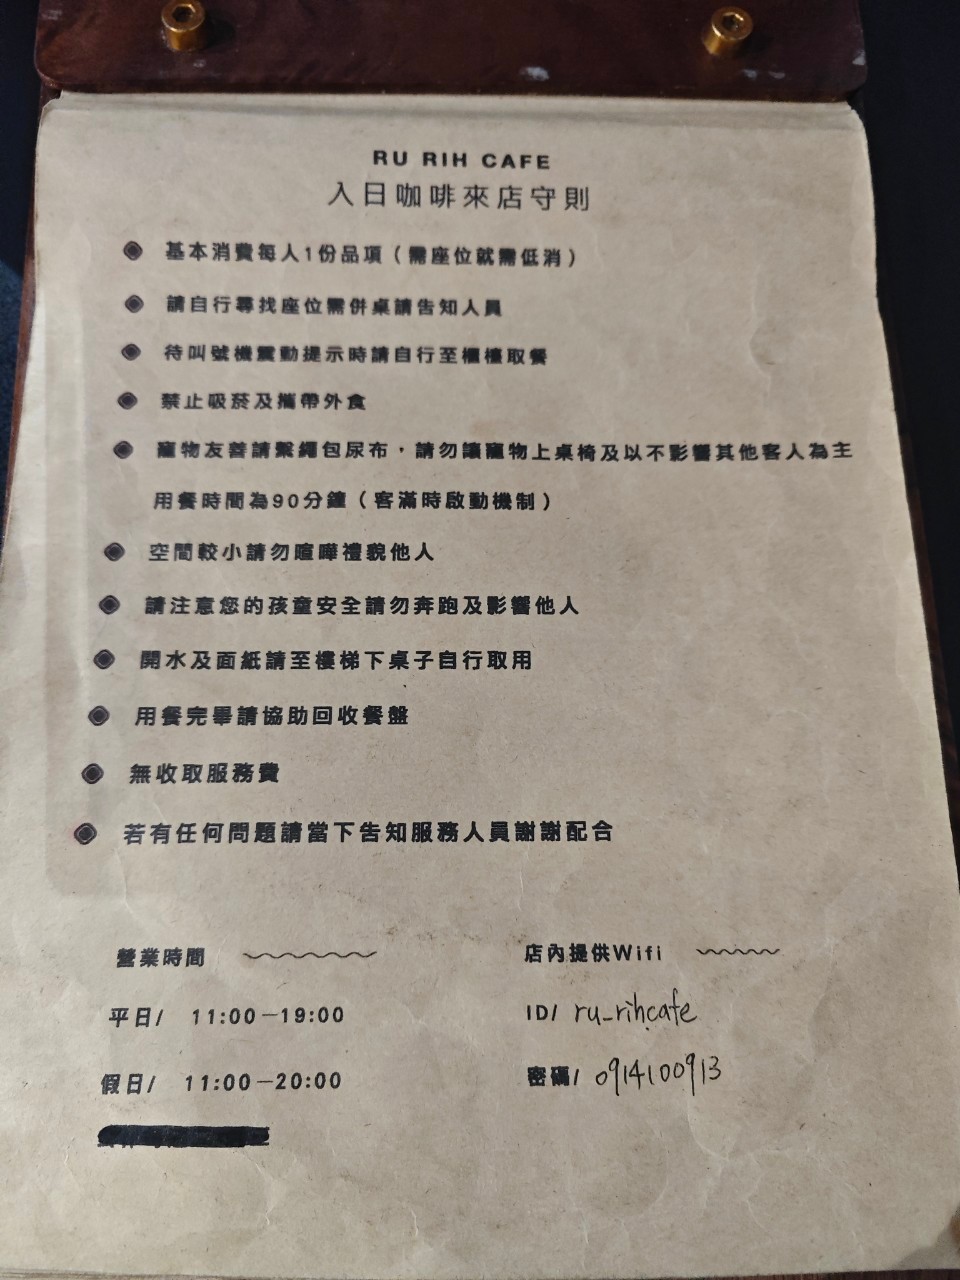 RU RIH CAFE
入日咖啡來店守則
基本消費每人1份品項（需座位就需低消）
請自行尋找座位需併桌請告知人員
待叫號機震動提示時請自行至櫃檯取餐
禁止吸菸及攜帶外食
寵物友善請繫繩包尿布，請勿讓寵物上桌椅及以不影響其他客人為主
用餐時間為90分鐘（客滿時啟動機制）
空間較小請勿喧嘩禮貌他人
請注意您的孩童安全請勿奔跑及影響他人
開水及面紙請至樓梯下桌子自行取用
用餐完畢請協助回收餐盤
無收取服務費
若有任何問題請當下告知服務人員謝謝配合
營業時間
平日/ 11:00－19:00
假日/ 11:00－20:00
店內提供Wifi
ID/ ru_rihcafe
密碼/ 0914100913